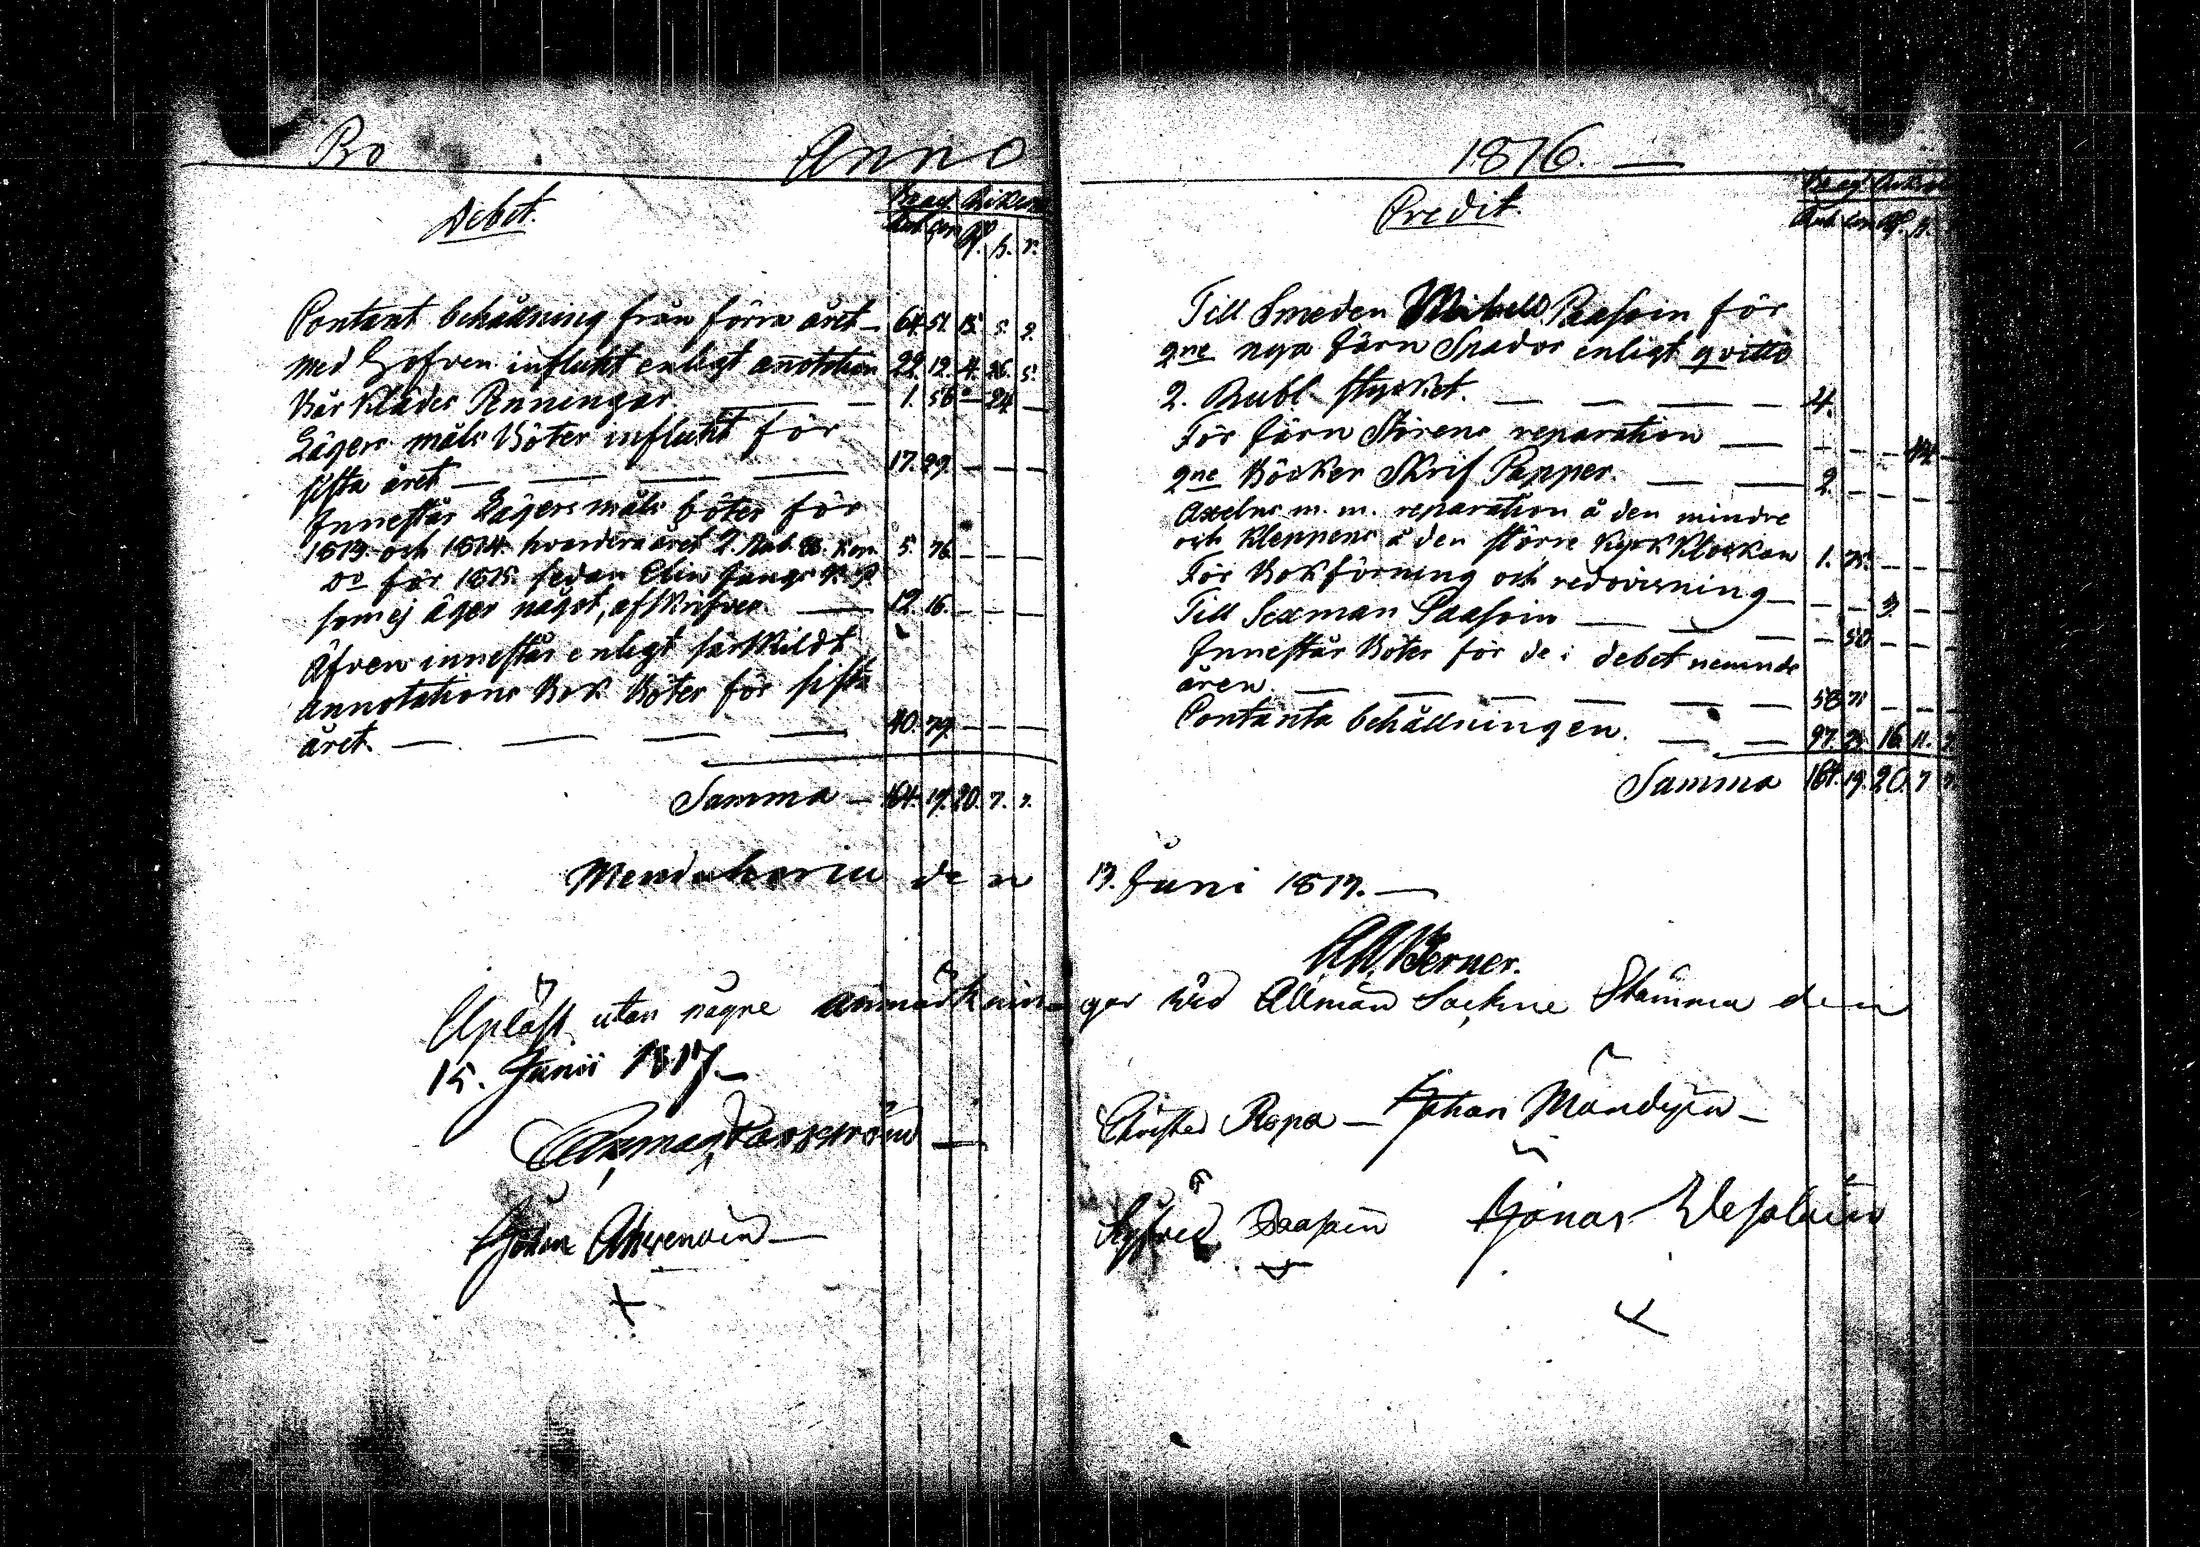 Anno 1816. —
Debet.
Contant behållning från förra året — 64. 51. 15. 5. 2.
Med Håfven influtit enligt annotation 22. 12. 4. 26. 5.
Bår Klädes Penningar — — 1. 56 — 24 —
Lägers måls Böter influtit för
sista året — — — — 17. 29. — — —
Innestår Lägersmåls böter för
1813 och 1814 hvardera året 2 Rub. 88 Kop. 5. 76. — — —
Do för 1815 sedan Elin
som ej äger något, afskrifves — 12. 16. — — —
Äfven innestår enligt särskildt
annotations Bok Böter för sista
året — — — — 40. 79. — — —
Summa — 164. 19. 20. 7. 7.
Credit.
Till Smeden Paasoin för
2ne nya Järn Spador enligt qvitto
2. Rubl. stycket. — — — — 4.
För Järn Störens reparation — — — — 14. —
2ne Böcker Skrif Papper. — — 2. — — — —
Axelns m. m. reparation å den mindre
och Kleppens å den större KyrkKlockan 1. 75. — — —
För Bokförning och redovisning — — — 3. — —
Till Sexman Paasoin — — — — 50 — — —
Innestår Böter för de i debet nemnde
åren. — — — — — 58. 71 — — —
Contanta behållningen. — — 97. 23. 16. 11.
Summa 164. 19. 20. 7
den 13. Juni 1817. —
Upläst utan någre anmärkningar vid Allmän Sockne Stämma den
15. Junii 1817. —
Christer Repo — Johan Möndyin —
Johan Ahvenoin —
Sigfred Paasoin Jonas